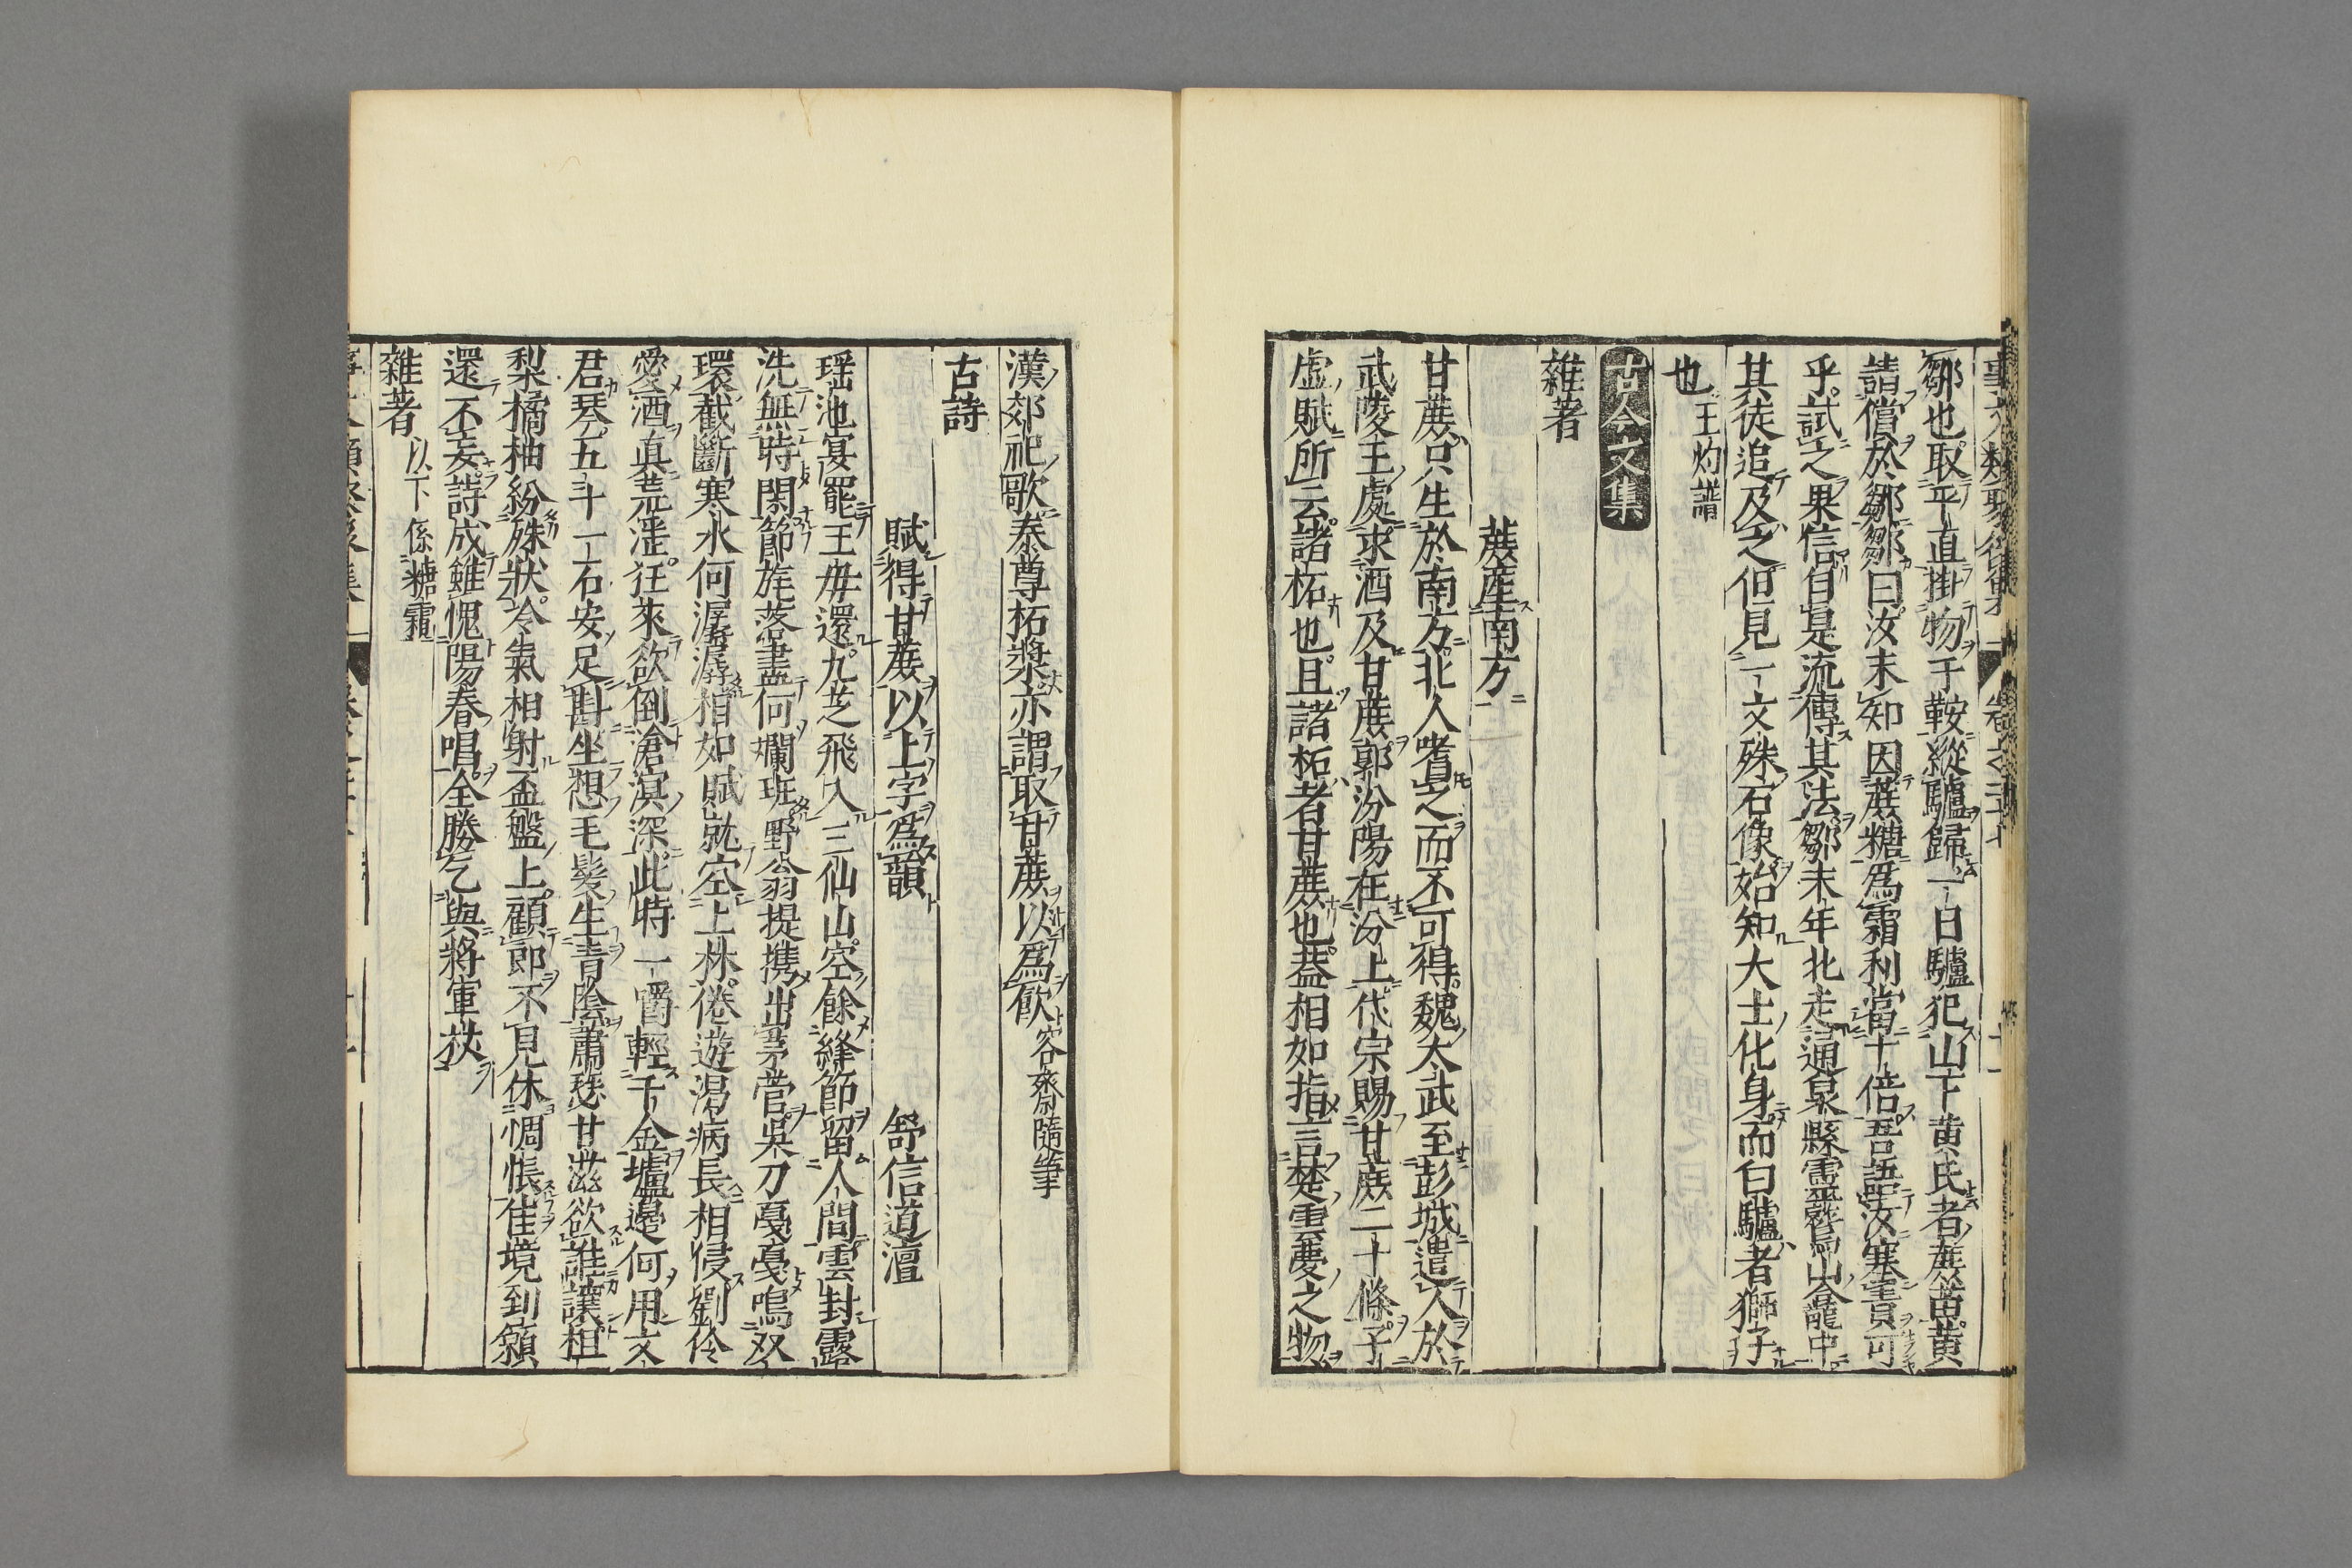 鄒也取平直掛物于鞍縱驢歸一日驢犯山下黄氏者蔗苗黄
請償於鄒鄒曰汝未知因蔗糖爲霜利當十倍吾語汝塞責可
乎試之果信自是流傳其法鄒末年北走通泉縣靈鷲山龕龍中
其徒追及之但見一文殊石像始知大士化身而白驢者獅子
也 王灼譜
古今文集
雜著
蔗産南方
甘蔗只生於南方北人嗜之而不可得魏太武至彭城遣人於
武陵王處求酒及甘蔗郭汾陽在汾上代宗賜甘蔗二十條子
虚賦所云諸柘也且諸柘者甘蔗也葢相如指言楚雲夢之物
漢郊祀歌泰尊柘漿亦謂取甘蔗以爲飮 容齋隨筆
古詩
賦得甘蔗以上字爲韻 舒信道亶
瑶池宴罷王毋還九芝飛入三仙山空餘絳節留人間雲封露
洗無時閑節旄落盡何斕班野翁提携出茅菅吳刀戛戛鳴双
環截斷寒氷何潺潺相如賦就空上林倦遊渇病長相侵劉伶
愛酒真荒滛狂來欲倒滄溟深此時一嚼輕千金壚邊何用文
君琴五斗一石安足斟坐想毛髮生青陰蕭瑟甘滋欲誰讓柤
梨橘柚紛殊狀冷氣相射盃盤上顧郎不見休惆悵佳境到頷
還不妄詩成雖愧陽春唱全勝乞與將軍杖
雜著 以下係糖霜